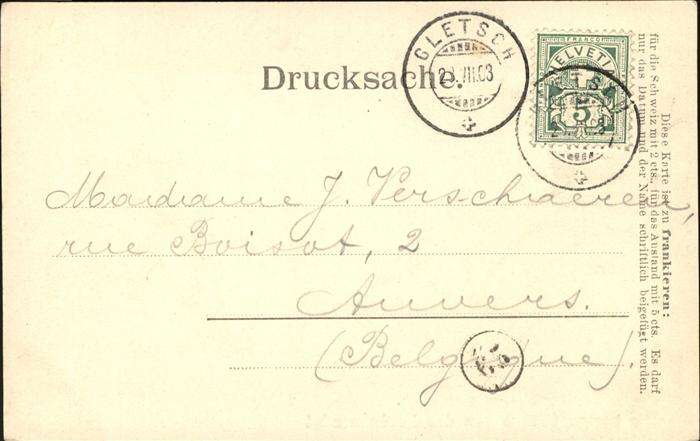 Drucksache.
GLETSCH
FRANCO
HELVETIA
5
Madame J. Verschaeren,
rue Boisot, 2
Anvers.
(Belgique).
Diese Karte ist zu frankieren:
für die Schweiz mit 2 cts. für das Ausland mit 5 cts. Es darf
nur das Datum und der Name schriftlich beigefügt werden.